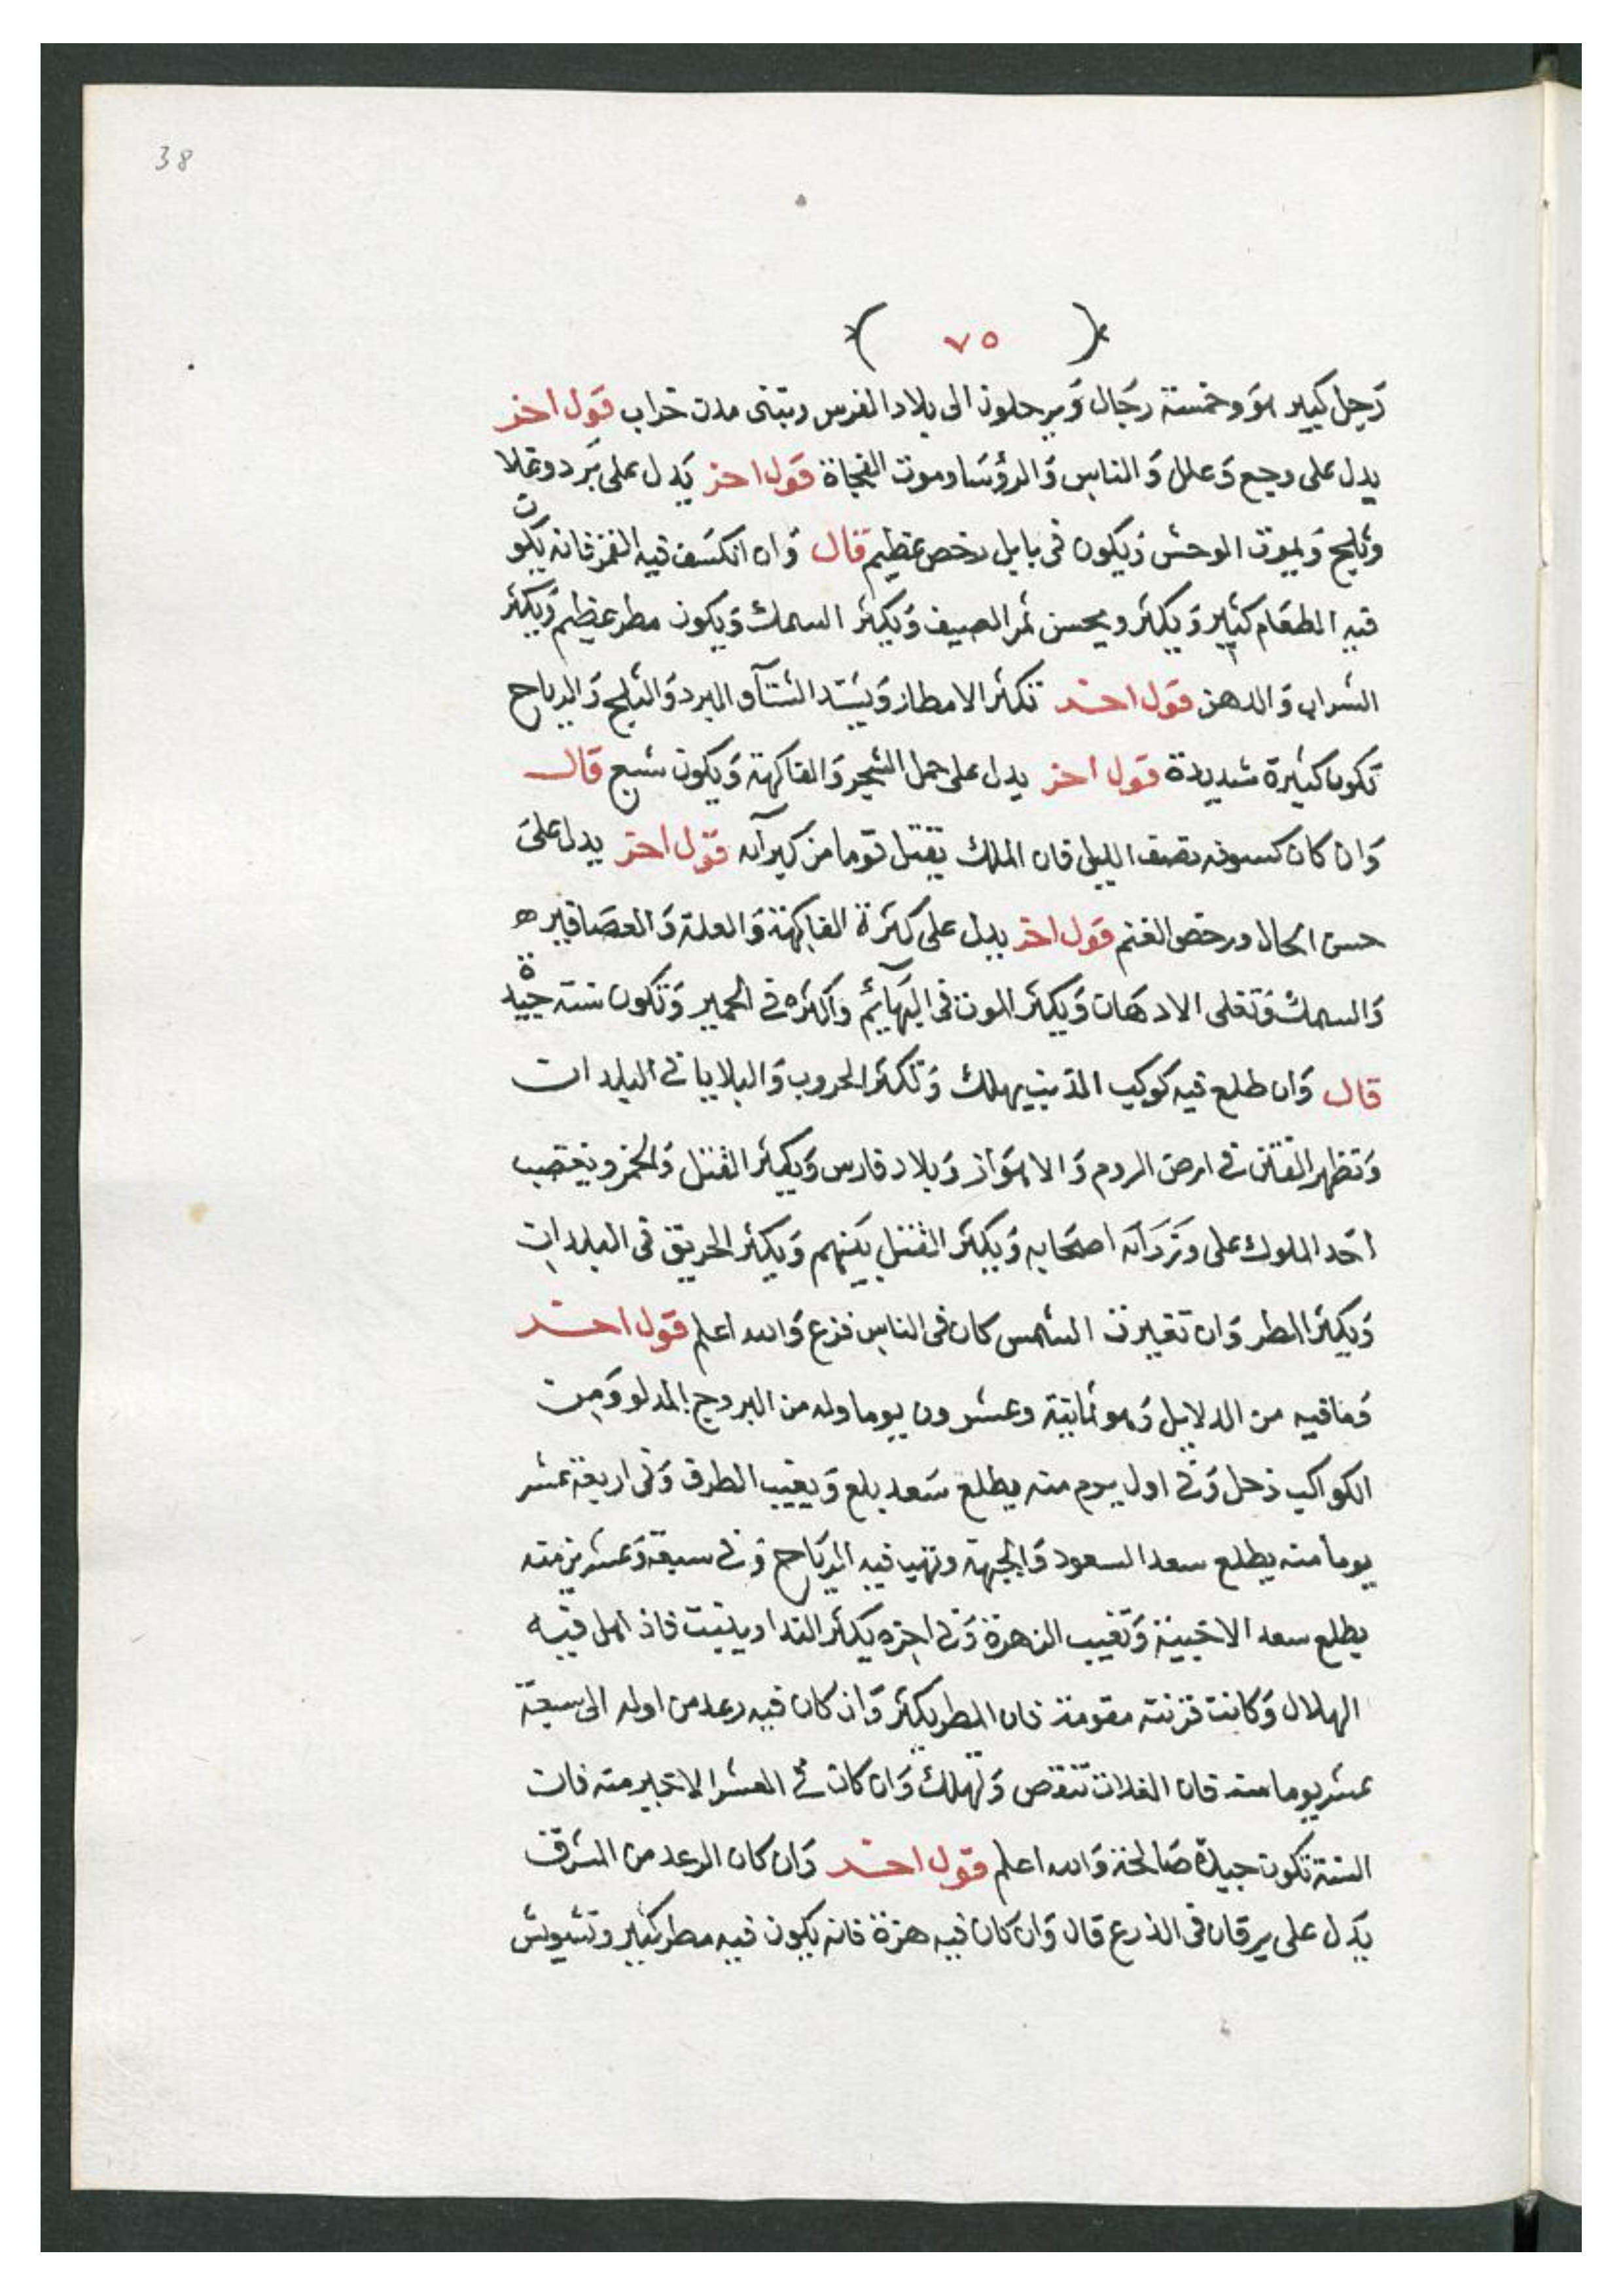 38
( ٧٥ )
رَجل كبير هوَ وخمسة رجَال وَيرحلون الى بلاد الفرس وتبنى مدن خراب قوَل اخر
يدل على وجع وَعلل وَالناس وَالرؤسَا وموت الفجاة قوَل اخر يَدل على بَرد وغلا
وثليج وَيموت الوحش وَيكون فى بابل رخص عظيم قال وَان انكسَف فيه القمر فانه يكون
فيه الطعَام كثير وَيكثر ويحسن ثمر الصيف وَيكثر السمك وَيكون مطر عظيم وَيكثر
الشراب وَالدهن قوَل اخر تكثر الامطار وَيشتد الشتآ والبرد وَالثلج وَالرياح
تكون كثيرة شديدة قوَل اخر يدل على حمل الشجر وَالفاكهة وَيكون شبع قال
وَان كان كسوفه نصف الليل فان الملك يقتل قوما من كبرآئه قوَل اخر يدل على
حسن الحال ورخص الغنم قوَل اخر يدل على كثرة الفاكهة وَالغلة وَالعصَافير
وَالسمك وَتغلى الادهَان وَيكثر الموت فى البهَآئم واكثره فى الحمير وَتكون سنة جيدة
قال وَان طلع فيه كوكب الذنب يهلك وَتكثر الحروب وَالبلايا فى البلدان
وَتظهر الفتن فى ارض الروم وَالاهوَاز وَبلاد فارس وَيكثر القتل وَالخمر ويغتصب
احَد الملوك على وزَرَآئه اصحَابه وَيكثر القتل بَينهم وَيكثر الحريق فى البلدان
وَيكثر المطر وَان تغيرت الشمس كان فى الناس فزع وَالله اعلم قوَل اخر
وَمافيه من الدلايل وَهو ثمانية وعشرون يوما وله من البروج الدلو وَمن
الكواكب زحل وَفى اول يوم منه يطلع سَعد بلع وَيغيب الطرف وَفى اربعة عشر
يوما منه يطلع سعد السعود وَالجبهة وتهب فيه الريَاح وَفى سبعة وَعشرين منه
يطلع سعد الاخبية وَتغيب الزهرة وَفى اخره يكثر الندا وينبت فاذ اهل فيه
الهلال وَكانت قرنته مقومة فان المطر يكثر وَان كان فيه رعد من اوله الى سبعة
عشر يوما منه فان الغلات تنقص وَتهلك وَان كان فى العشر الاخير منه فان
السنة تكون جيدة صَالحة وَالله اعلم قوَل اخر وَان كان الرعد من الشرق
يَدل على يرقان فى الذرع قال وَان كان فيه هزة فانه يكون فيه مطر كثير وتشويش